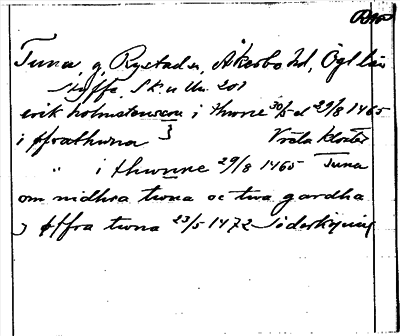 RAp
Tuna g Rystads sn, Åkerbo hd, Ögl län
Styffe, Sk. u. Un. 201
erik holmstensson i thwne 30/5 d 29/8 1465
i ffrathwna } Vreta kloster
" i thwnne 29/8 1465 Tuna
om nidhra twna oc twa gardha
j öffra twna 23/5 1472 Söderköping